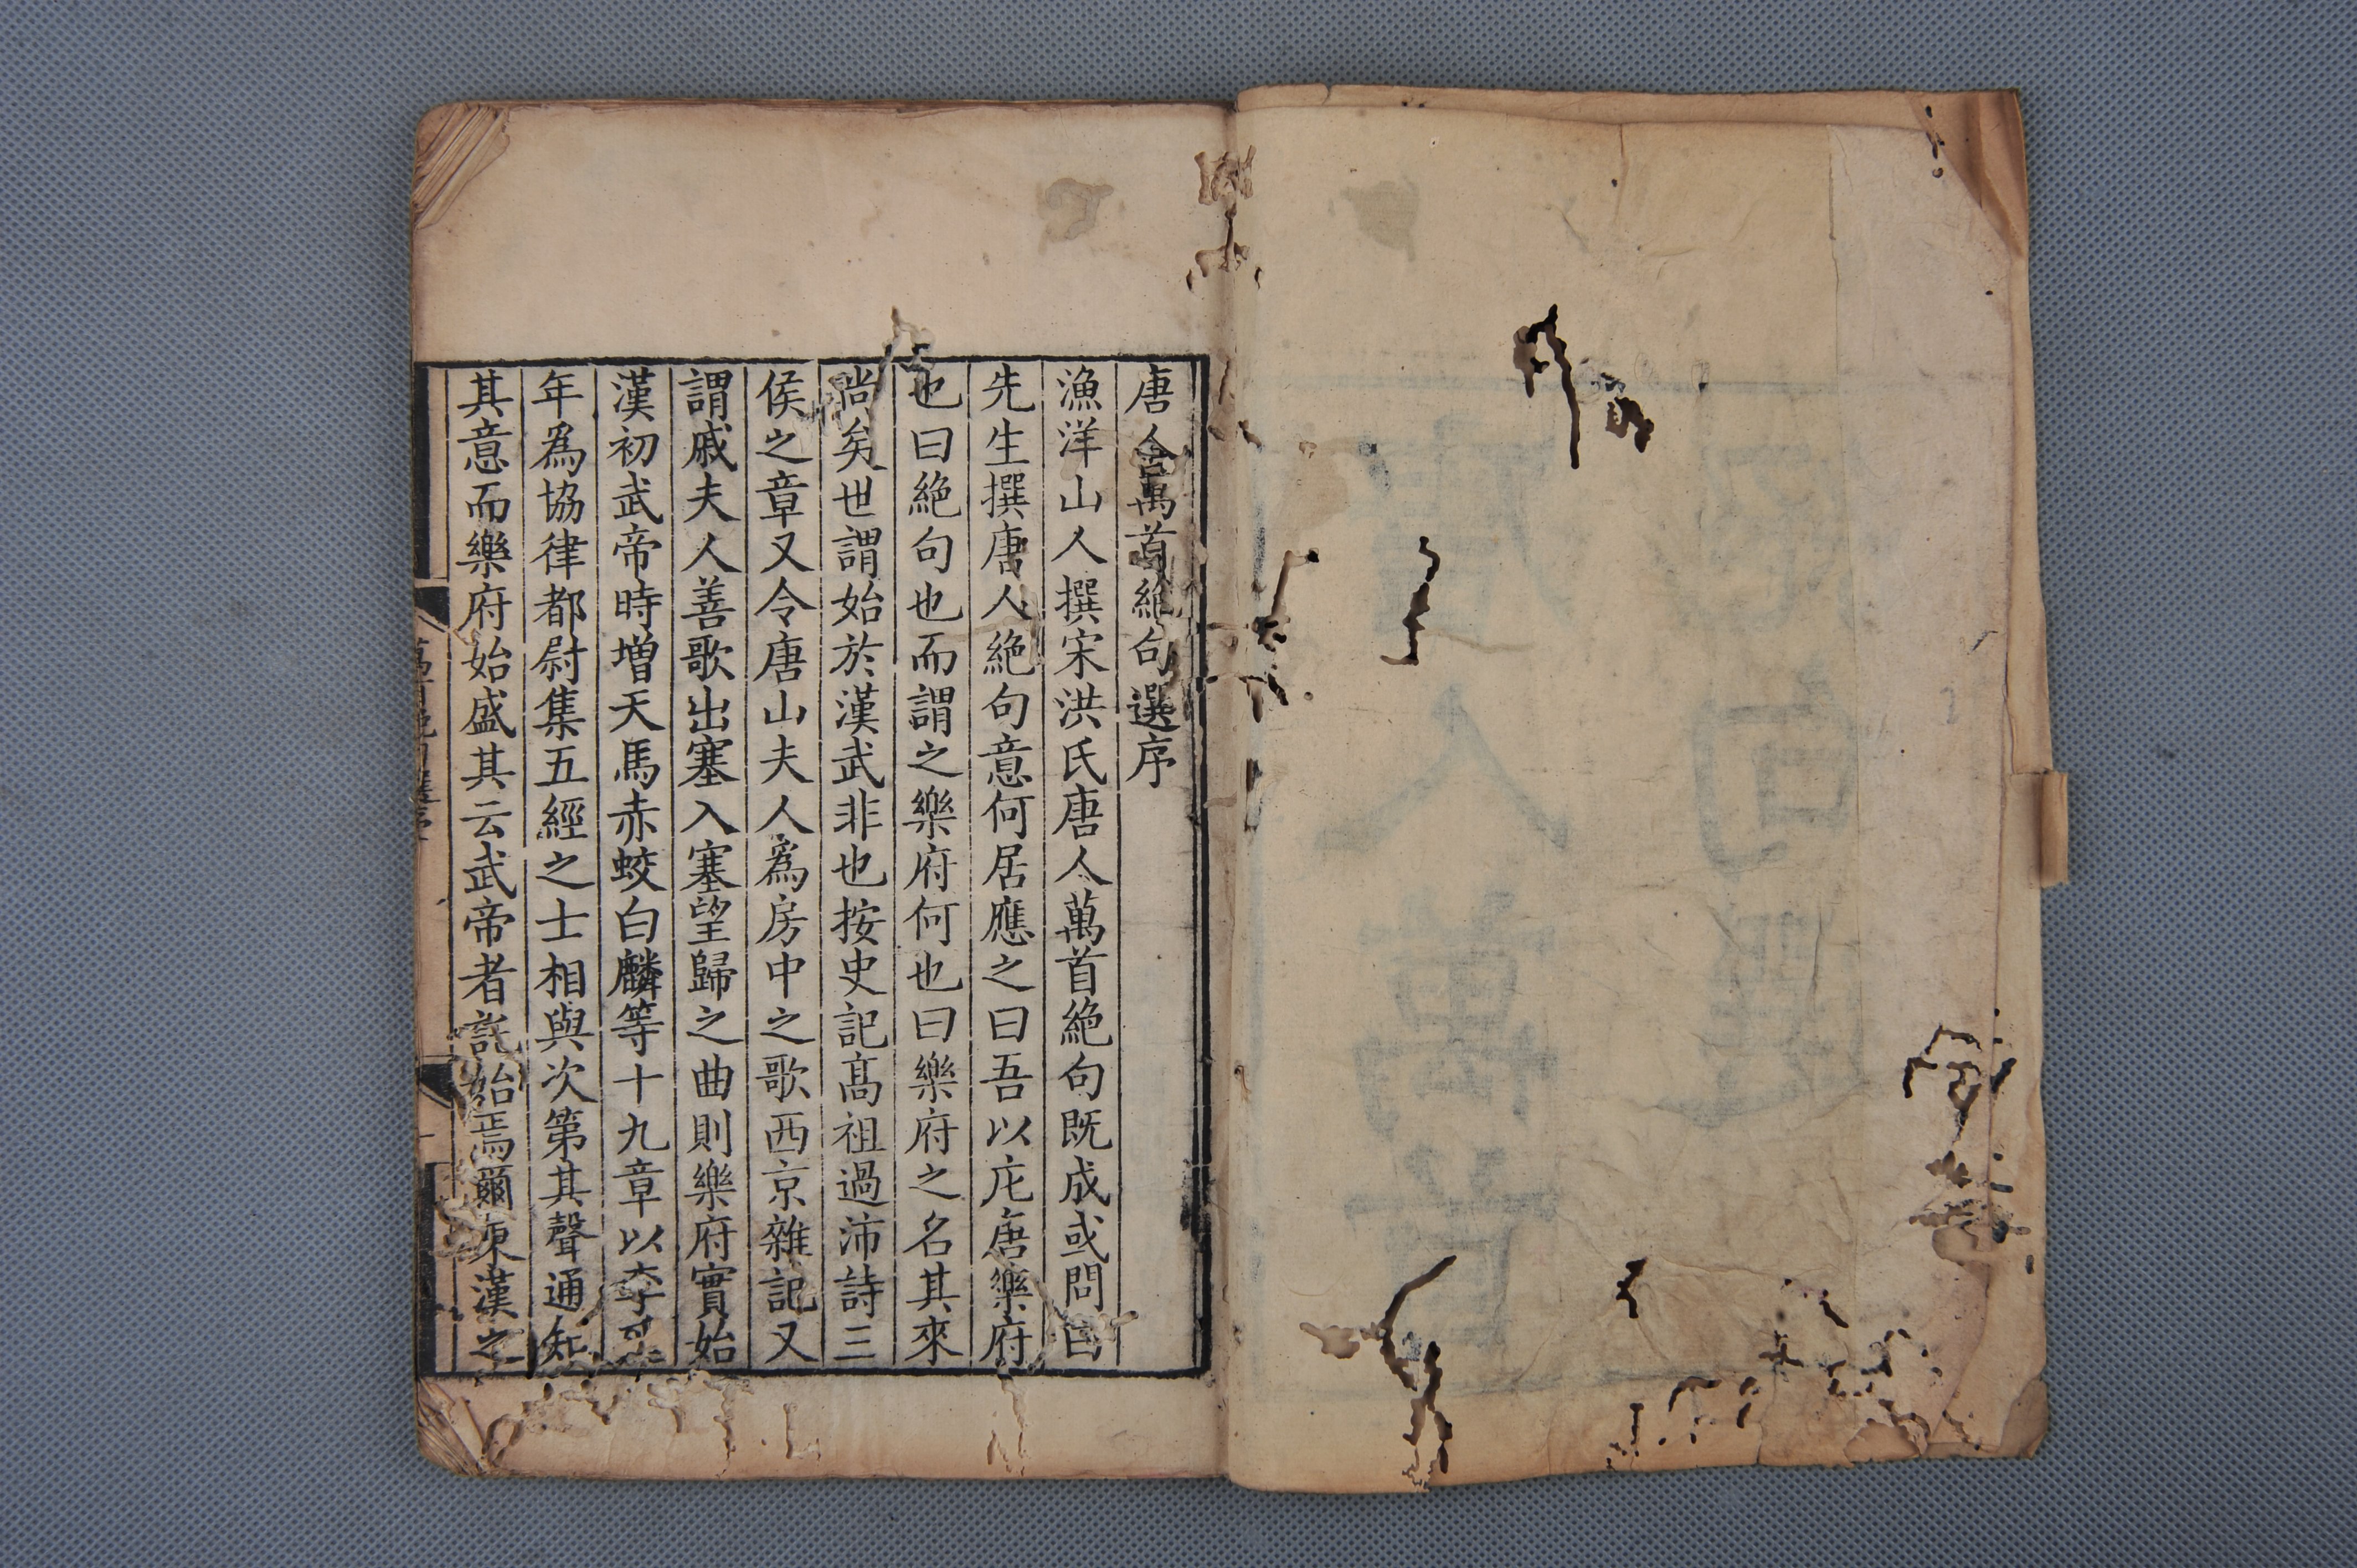 唐人萬首絕句選序
漁洋山人撰宋洪氏唐人萬首絕句既成或問曰
先生撰唐人絕句意何居應之曰吾以庀唐樂府
也曰絕句也而謂之樂府何也曰樂府之名其來
尚矣世謂始於漢武非也按史記髙祖過沛詩三
侯之章又令唐山夫人爲房中之歌西京雜記又
謂戚夫人善歌出塞入塞望歸之曲則樂府實始
漢初武帝時增天馬赤蛟白麟等十九章以李
年爲協律都尉集五經之士相與次第其聲通知
其意而樂府始盛其云武帝者託始焉爾東漢之
唐人萬首
絕句選